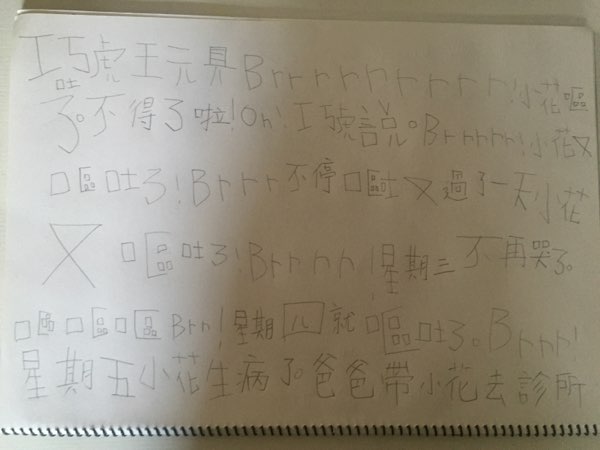 工巧虎王元具Brrrrrrrrrr!小花嘔吐
了。不得了啦!Oh!工巧虎說。Brrrrrr!小花又
嘔吐了!Brrr不停嘔吐又過了一天小花
又嘔吐了!Brrrrr!星期三不再哭了。
嘔嘔嘔Brr!星期四就嘔吐了。Brrr!
星期五小花生病了。爸爸帶小花去診所